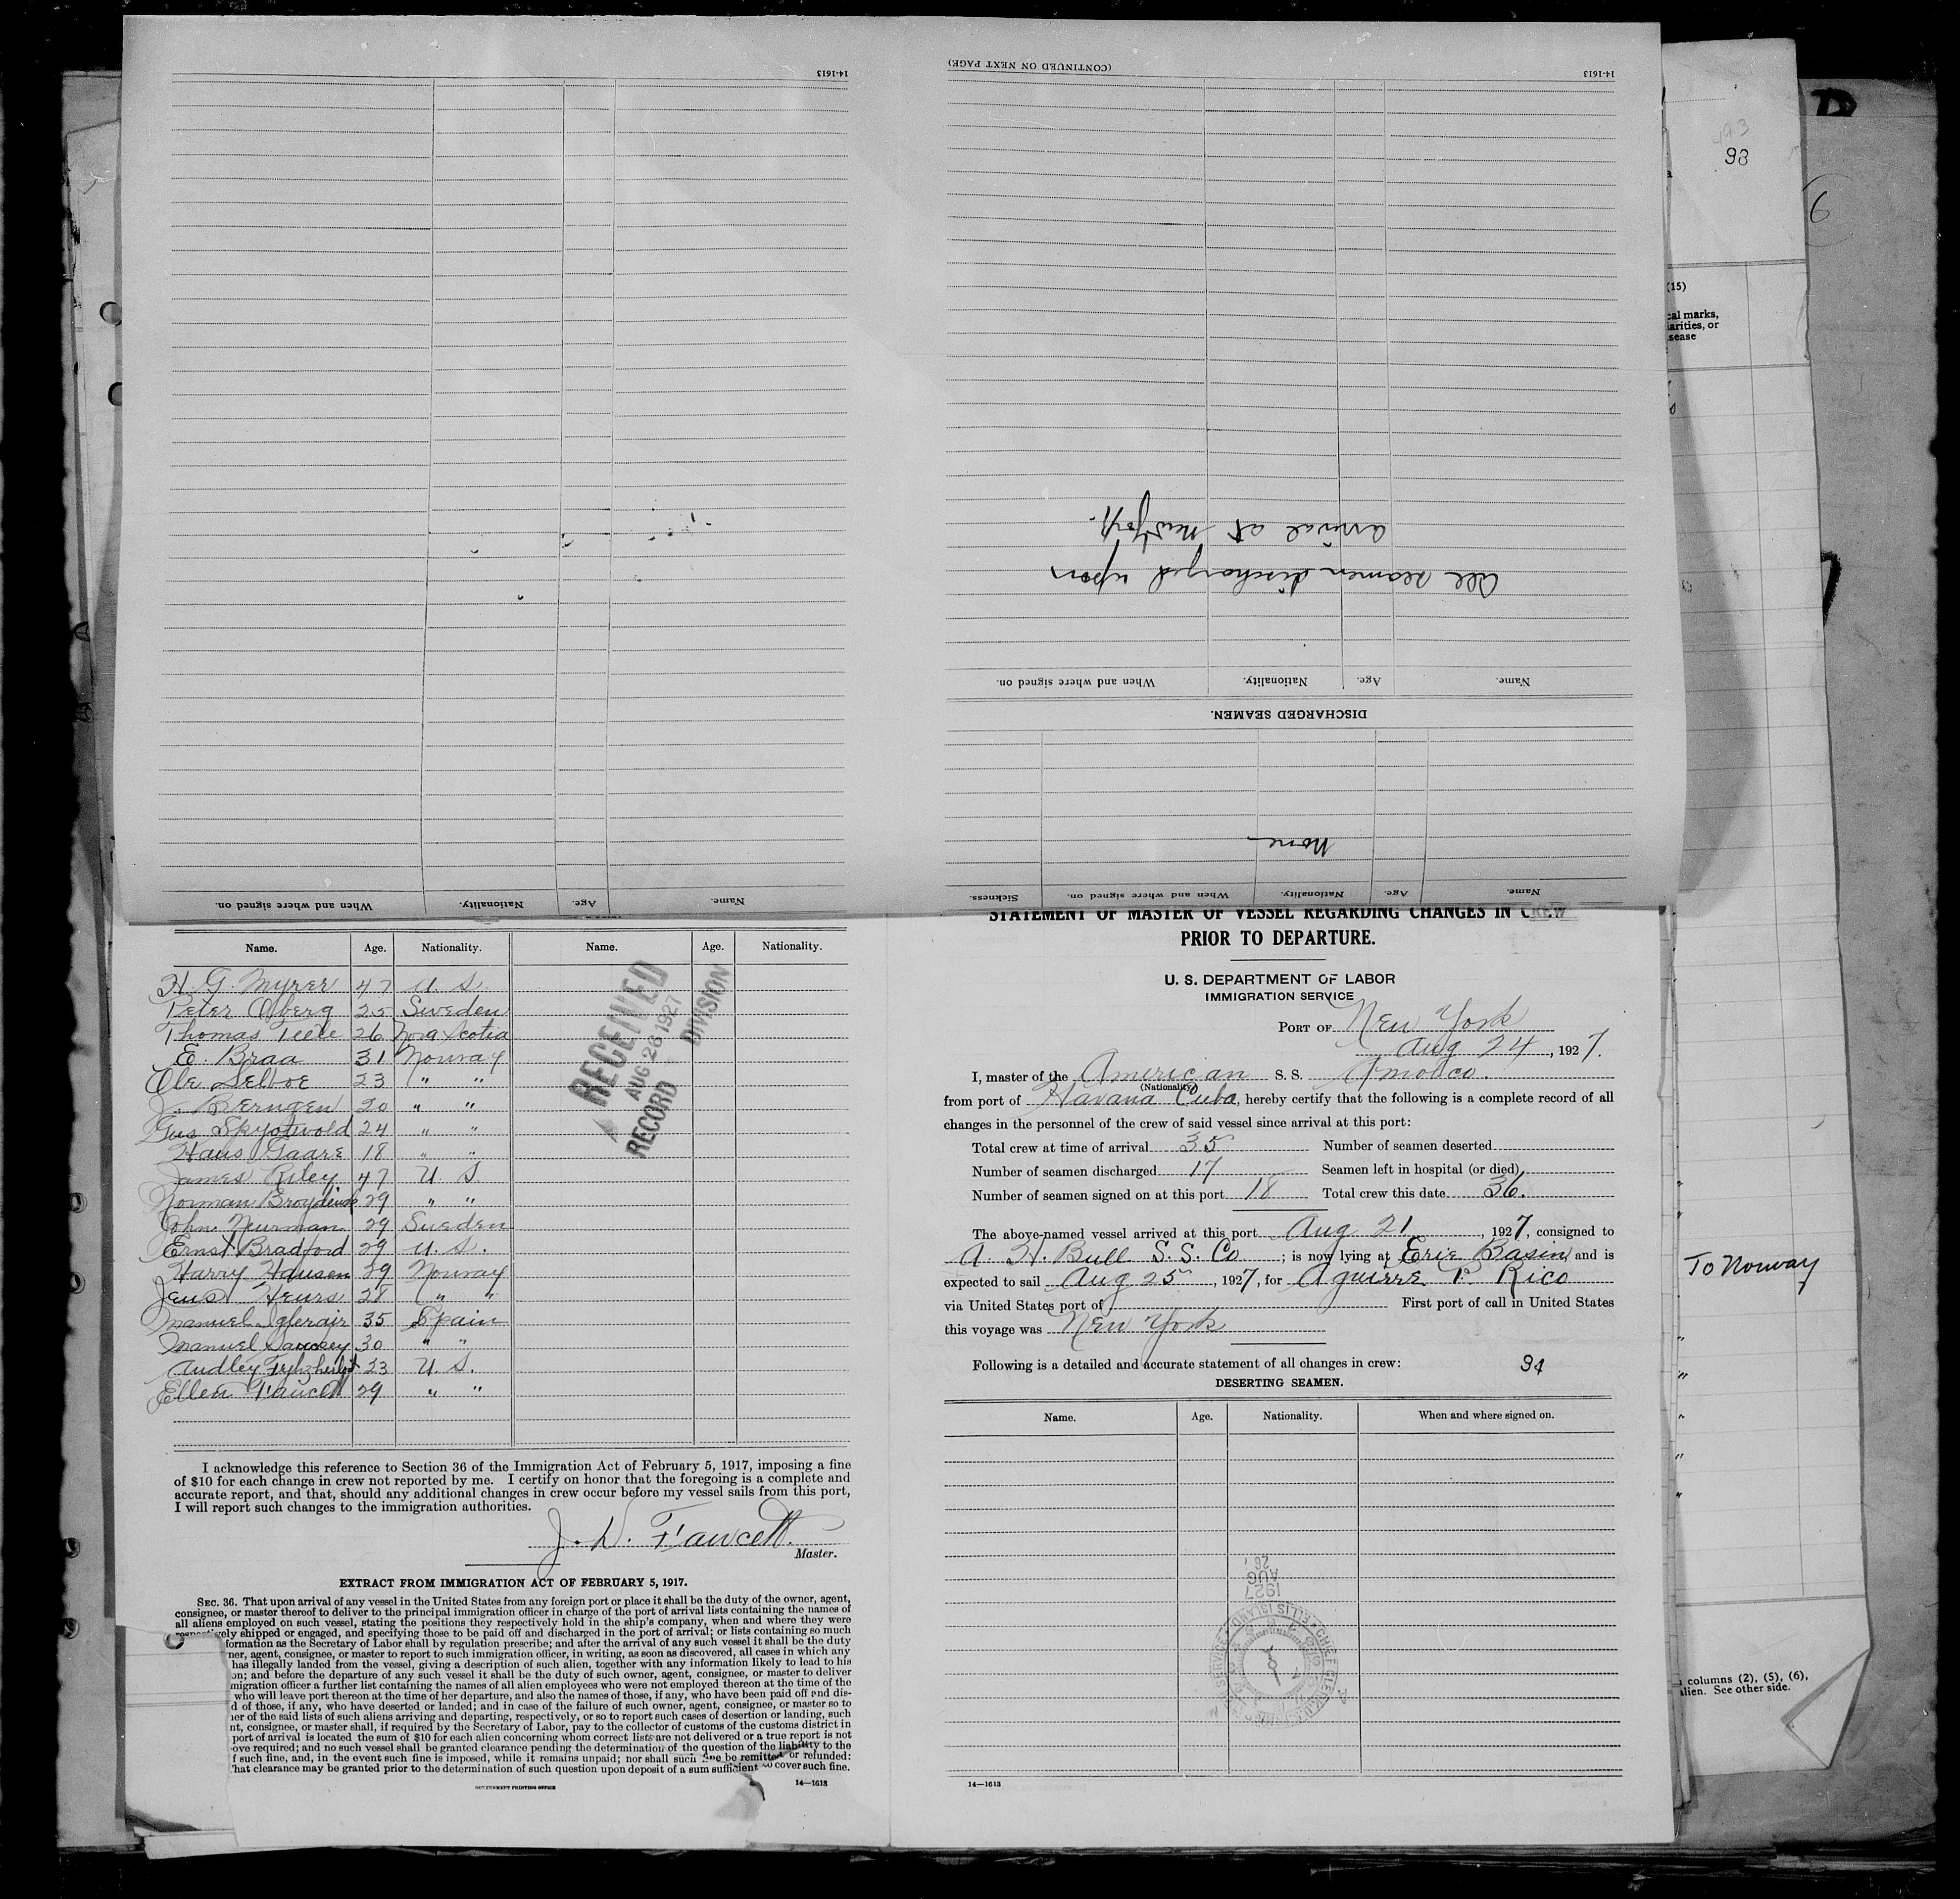 14-1613
(CONTINUED ON NEXT PAGE)
14-1613
493
93
6
(15)
cal marks,
iarities, or
sease
arrival at New York.
All seamen discharged upon
When and where signed on. Nationality. Age. Name.
DISCHARGED SEAMEN.
None
Sickness. When and where signed on. Nationality. Age. Name.
When and where signed on. Nationality. Age. Name.
Name. Age. Nationality. Name. Age. Nationality.
H. G. Myrer 47 U. S.
Peter Oberg 25 Sweden
Thomas 26 Nova Scotia
E. Braa 31 Norway
Ole Selboe 23 " "
J. Berngen 20 " "
Gus 24 " "
Hans Gaare 18 " "
James Riley 47 U. S.
Norman 29 " "
John Neurman 29 Sweden
Ernst Bradford 29 U. S.
Harry Hausen 29 Norway
Jens Heurs 28 " "
Manuel 35 Spain
Manuel 30 " "
Audley 23 U. S.
Ellen Fawcett 29 " "
RECEIVED
AUG 26 1927
RECORD DIVISION
I acknowledge this reference to Section 36 of the Immigration Act of February 5, 1917, imposing a fine
of $10 for each change in crew not reported by me. I certify on honor that the foregoing is a complete and
accurate report, and that, should any additional changes in crew occur before my vessel sails from this port,
I will report such changes to the immigration authorities.
J. W. Fawcett.
Master.
EXTRACT FROM IMMIGRATION ACT OF FEBRUARY 5, 1917.
SEC. 36. That upon arrival of any vessel in the United States from any foreign port or place it shall be the duty of the owner, agent,
consignee, or master thereof to deliver to the principal immigration officer in charge of the port of arrival lists containing the names of
all aliens employed on such vessel, stating the positions they respectively hold in the ship's company, when and where they were
respectively shipped or engaged, and specifying those to be paid off and discharged in the port of arrival; or lists containing so much
formation as the Secretary of Labor shall by regulation prescribe; and after the arrival of any such vessel it shall be the duty
ner, agent, consignee, or master to report to such immigration officer, in writing, as soon as discovered, all cases in which any
has illegally landed from the vessel, giving a description of such alien, together with any information likely to lead to his
on; and before the departure of any such vessel it shall be the duty of such owner, agent, consignee, or master to deliver
migration officer a further list containing the names of all alien employees who were not employed thereon at the time of the
who will leave port thereon at the time of her departure, and also the names of those, if any, who have been paid off and dis-
d of those, if any, who have deserted or landed; and in case of the failure of such owner, agent, consignee, or master so to
er of the said lists of such aliens arriving and departing, respectively, or so to report such cases of desertion or landing, such
nt, consignee, or master shall, if required by the Secretary of Labor, pay to the collector of customs of the customs district in
port of arrival is located the sum of $10 for each alien concerning whom correct lists are not delivered or a true report is not
ove required; and no such vessel shall be granted clearance pending the determination of the question of the liability to the
f such fine, and, in the event such fine is imposed, while it remains unpaid; nor shall such fine be remitted or refunded:
hat clearance may be granted prior to the determination of such question upon deposit of a sum sufficient to cover such fine.
GOVERNMENT PRINTING OFFICE
14—1613
STATEMENT OF MASTER OF VESSEL REGARDING CHANGES IN CREW
PRIOR TO DEPARTURE.
U. S. DEPARTMENT OF LABOR
IMMIGRATION SERVICE
PORT OF New York
Aug 24, 1927.
I, master of the American S. S. Amobco.
(Nationality)
from port of Havana Cuba, hereby certify that the following is a complete record of all
changes in the personnel of the crew of said vessel since arrival at this port:
Total crew at time of arrival 35 Number of seamen deserted
Number of seamen discharged 17 Seamen left in hospital (or died)
Number of seamen signed on at this port 18 Total crew this date 36.
The above-named vessel arrived at this port Aug 21, 1927, consigned to
A. H. Bull S. S. Co; is now lying at Erie Basin, and is
expected to sail Aug 25, 1927, for Aguirre P. Rico
via United States port of First port of call in United States
this voyage was New York
Following is a detailed and accurate statement of all changes in crew:
94
DESERTING SEAMEN.
Name. Age. Nationality. When and where signed on.
1927
AUG
26
14—1613
To Norway
"
"
"
"
"
"
"
columns (2), (5), (6),
alien. See other side.